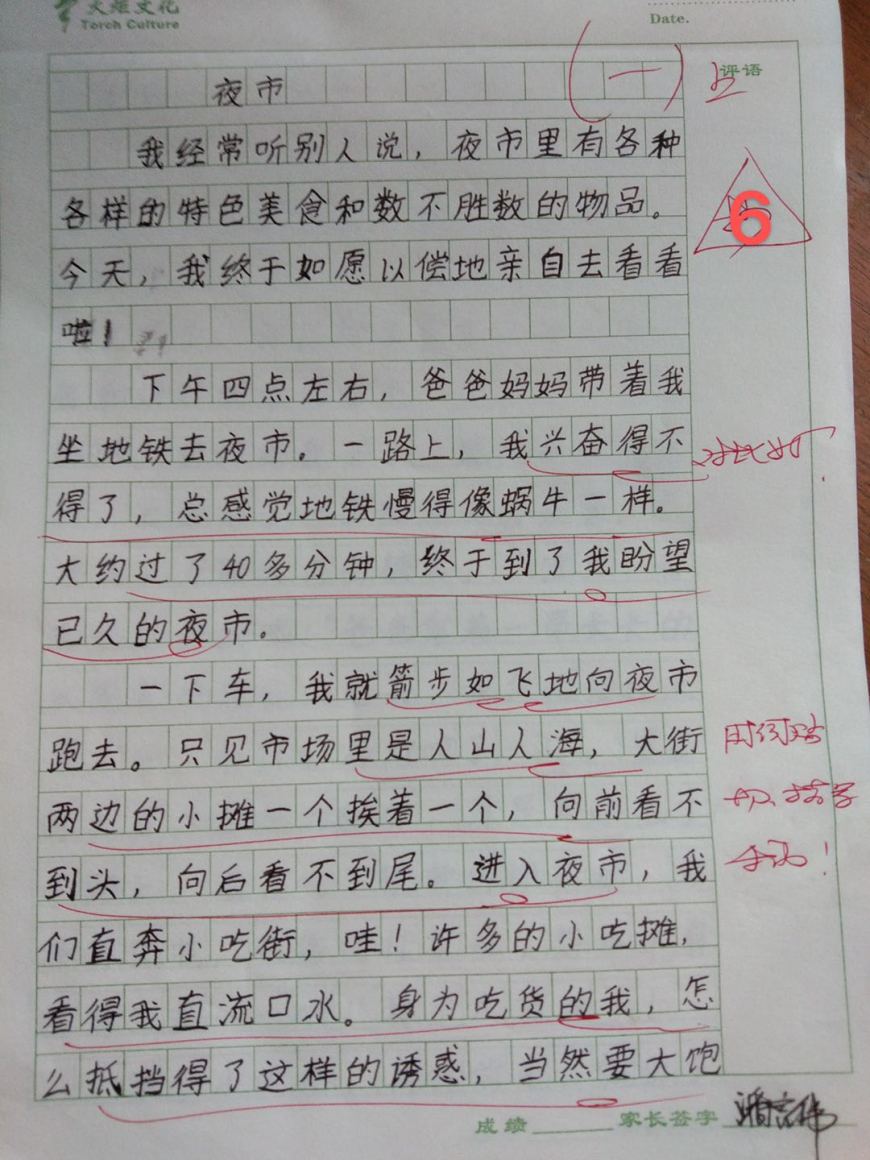 火炬文化
Torch Culture
Date.
夜市
(一)
评语
6
我经常听别人说，夜市里有各种
各样的特色美食和数不胜数的物品。
今天，我终于如愿以偿地亲自去看看
啦！
下午四点左右，爸爸妈妈带着我
坐地铁去夜市。一路上，我兴奋得不
得了，总感觉地铁慢得像蜗牛一样。
大约过了40多分钟，终于到了我盼望
已久的夜市。
一下车，我就箭步如飞地向夜市
跑去。只见市场里是人山人海，大街
两边的小摊一个挨着一个，向前看不
到头，向后看不到尾。进入夜市，我
们直奔小吃街，哇！许多的小吃摊，
看得我直流口水。身为吃货的我，怎
么抵挡得了这样的诱惑，当然要大饱
成绩 家长签字